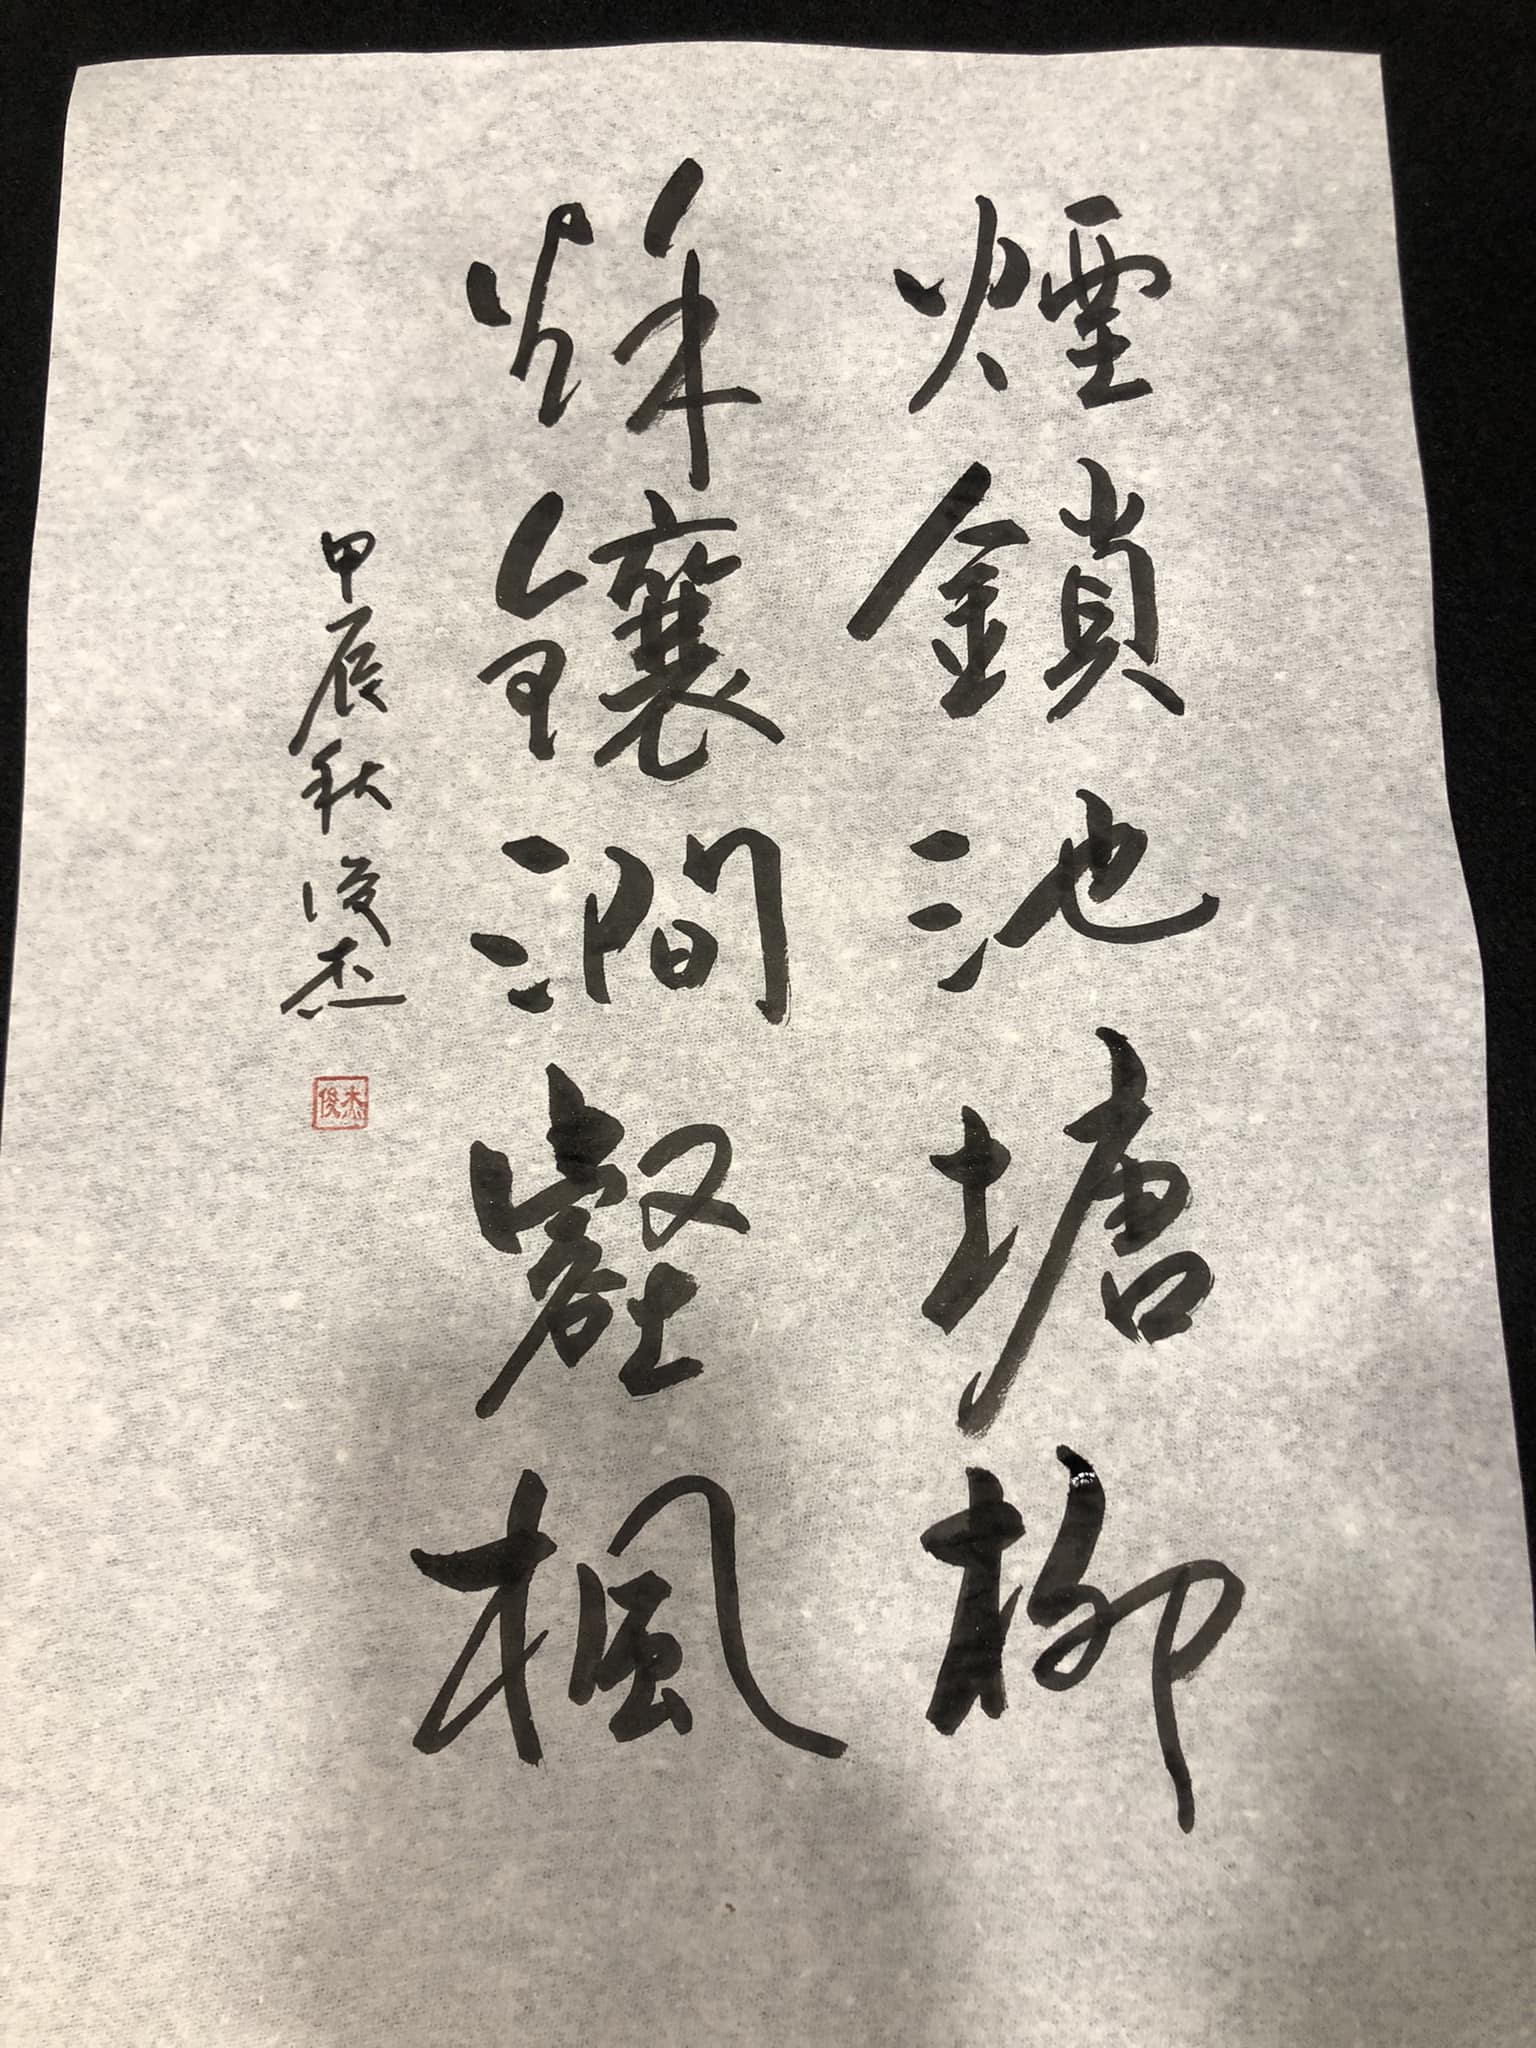 煙鎖池塘柳
秌鑲澗壑楓
甲辰秋俊杰
俊杰